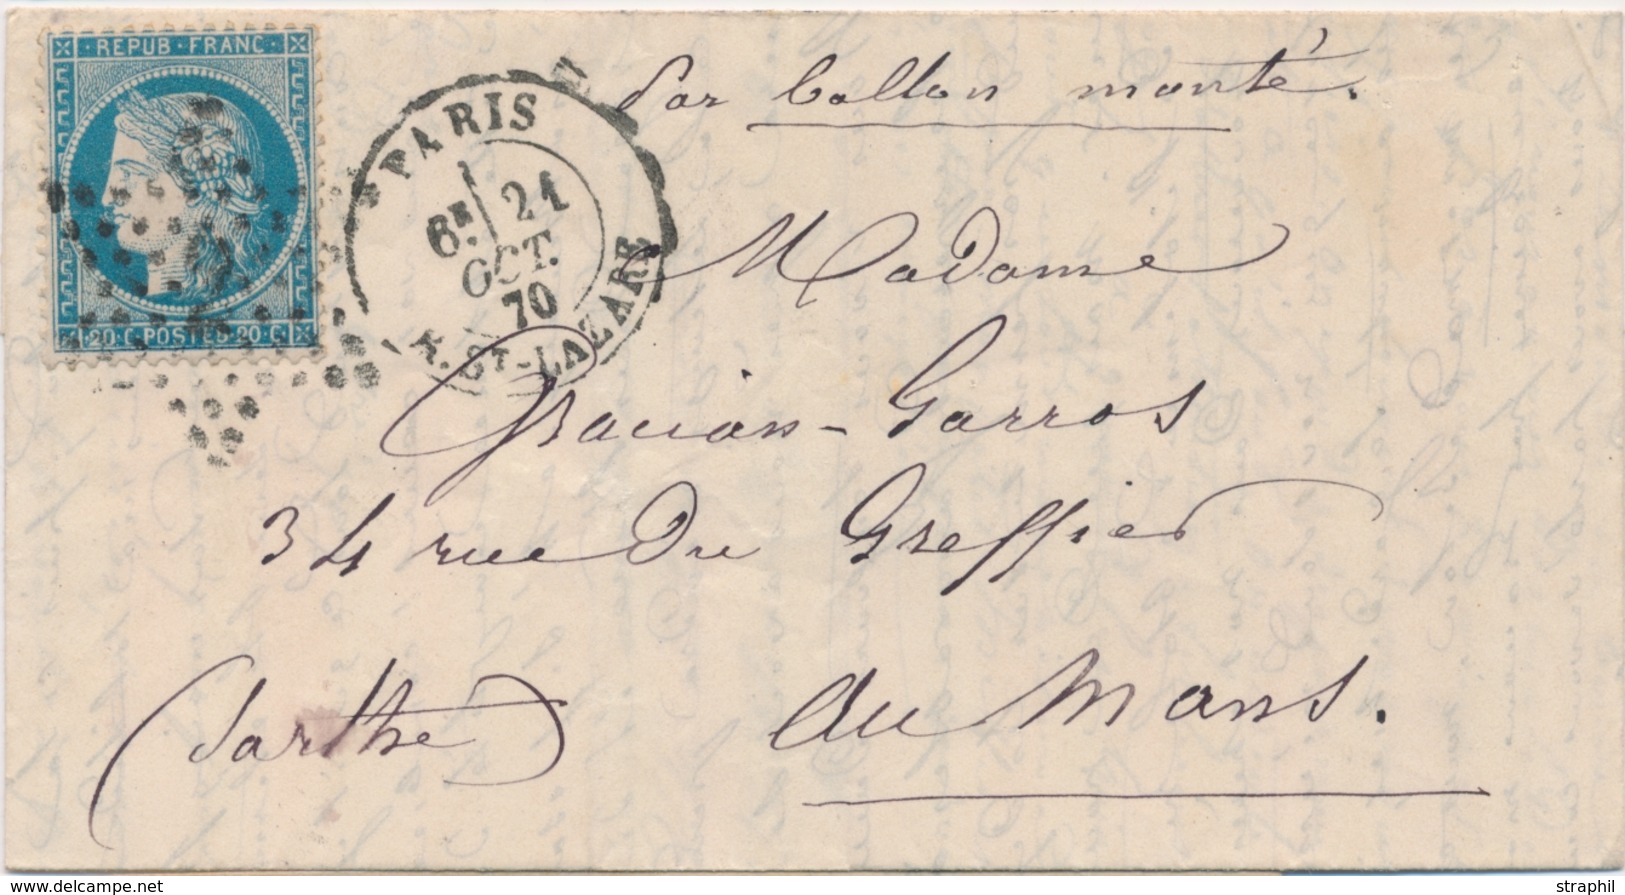 REPUB · FRANC
20 · C POSTES 20 · C
PARIS
6E 21
OCT.
70
R. ST-LAZARE
Par ballon monté.
Madame
Garros
34 rue du Greffier
au Mans.
(Sarthe)
www.delcampe.net
straphil